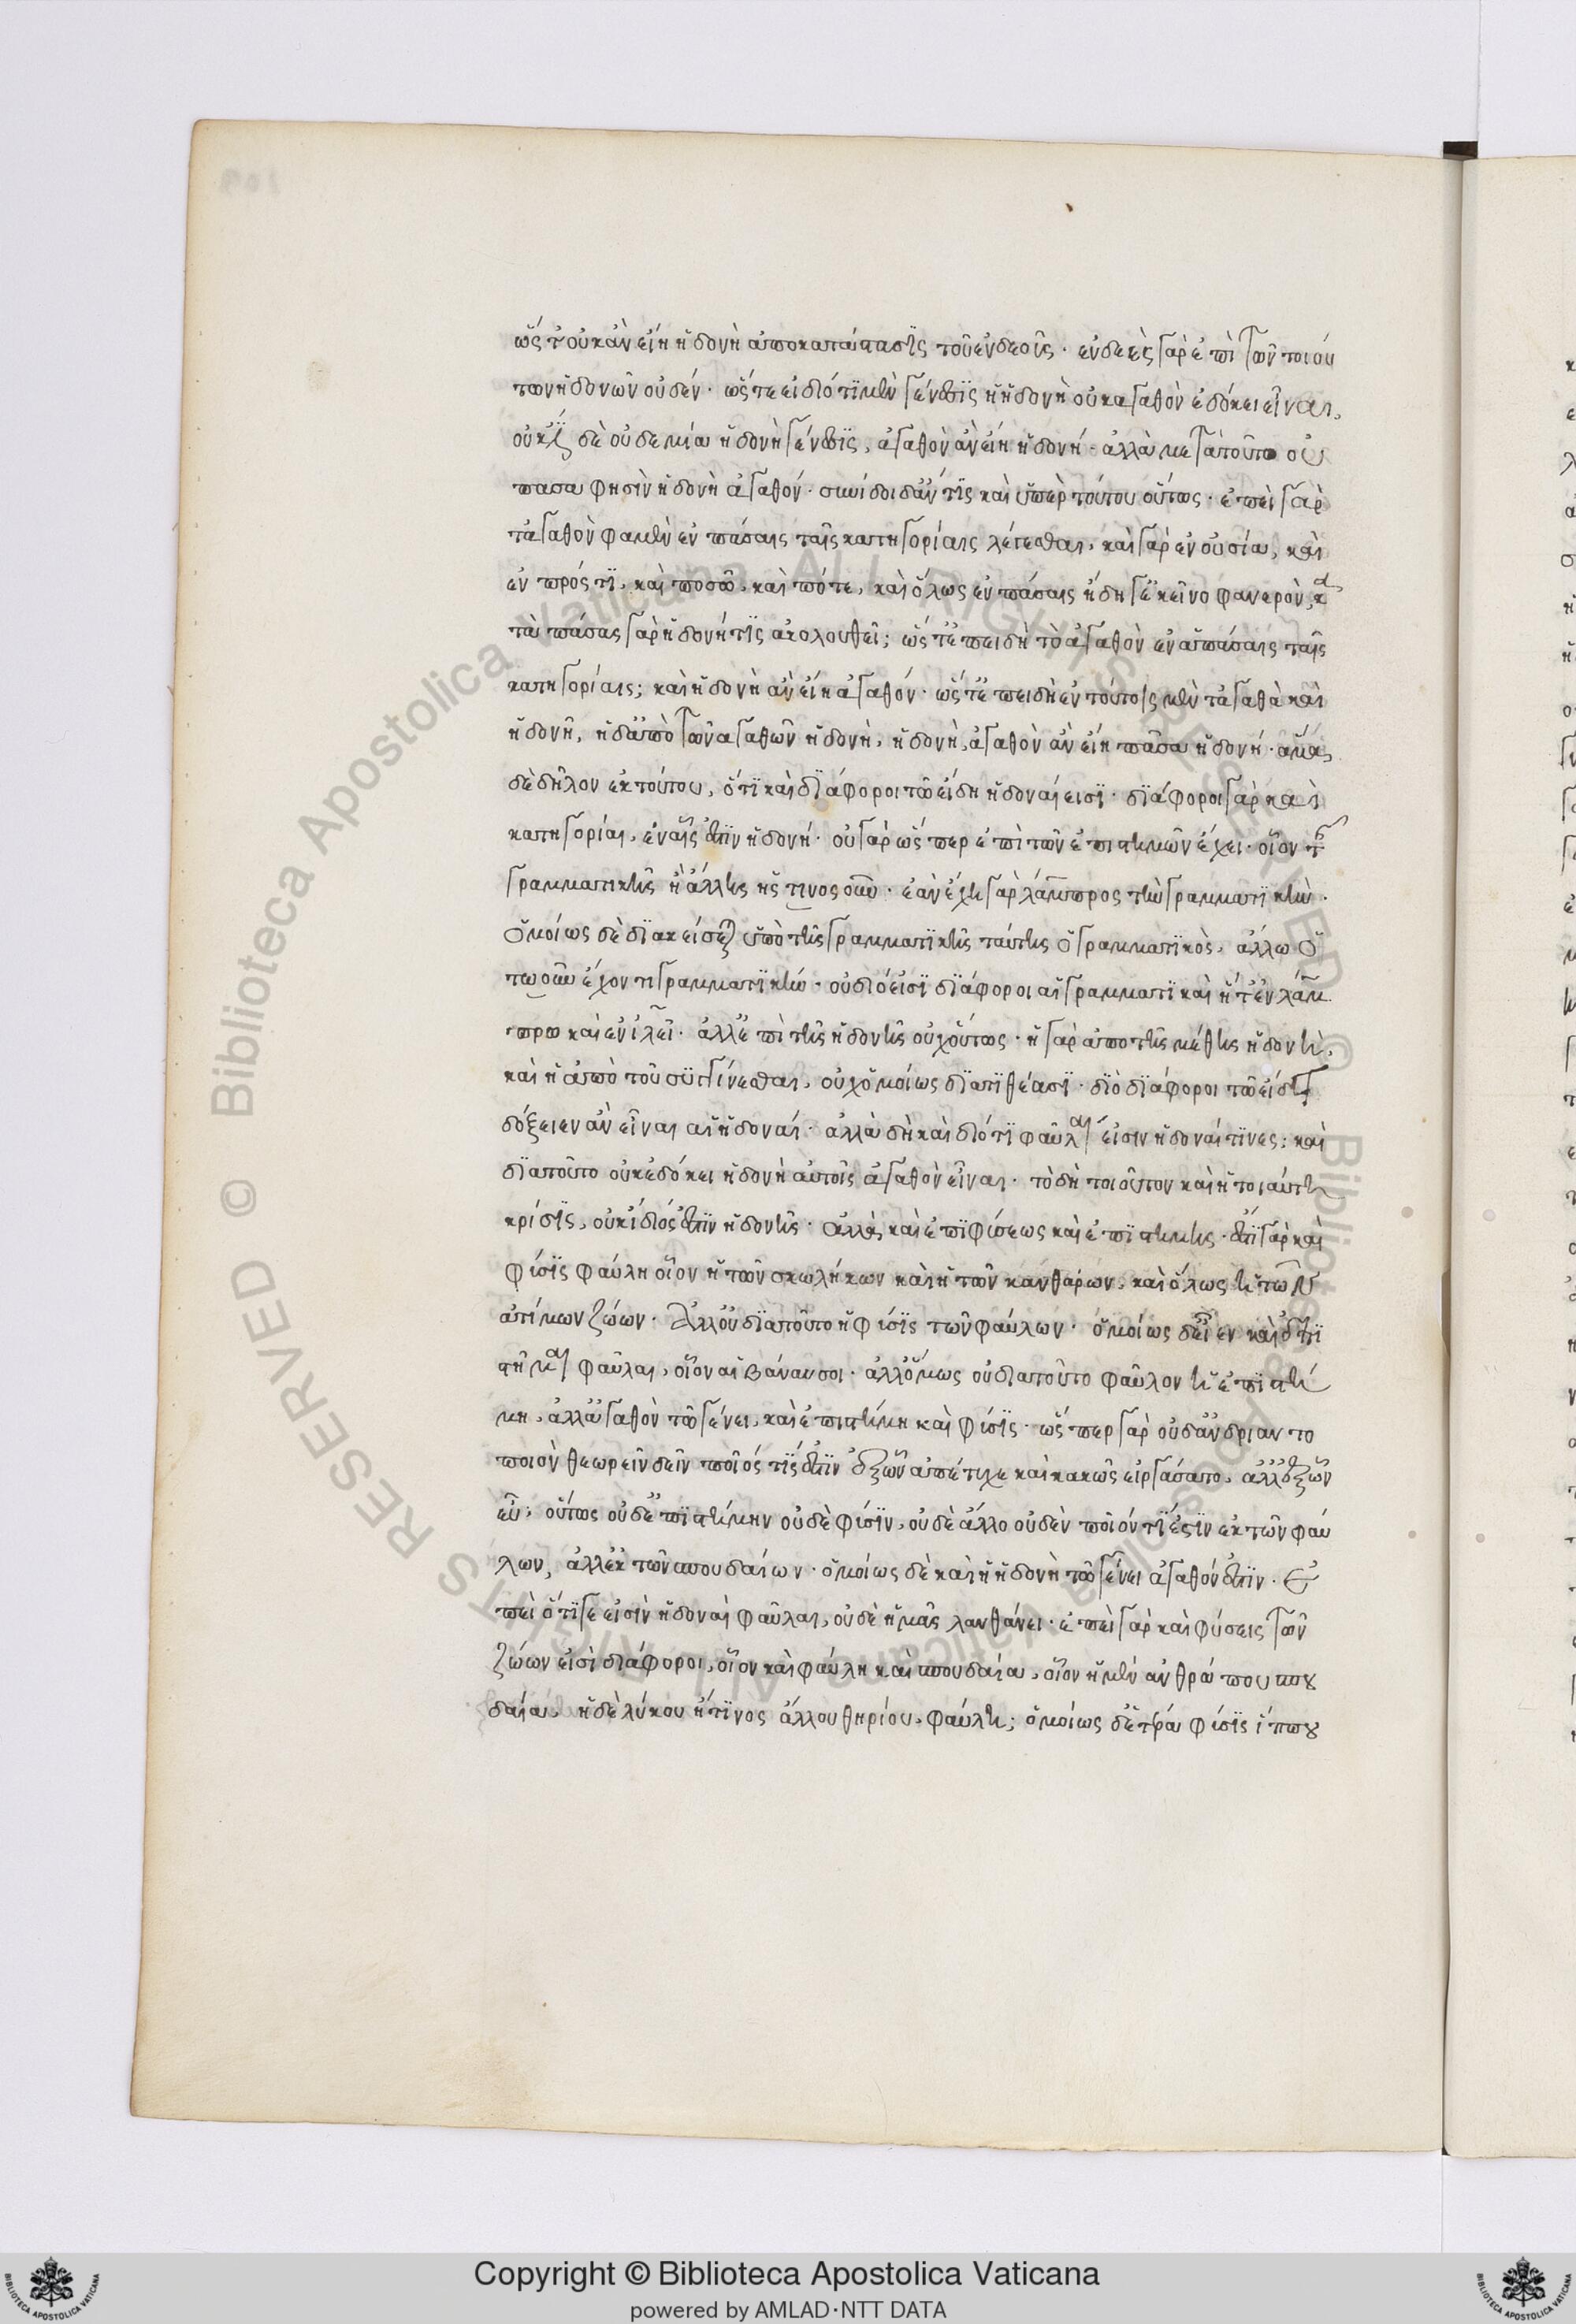 ὥστ' οὐκ ἂν εἴη ἡδονὴ ἀποκατάστασις τοῦ ἐνδεοῦς· ἐνδεὲς γὰρ ἐπὶ τῶν τοιού
των ἡδονῶν οὐδέν· ὥστε εἰ διότι μὲν γένεσις ἡ ἡδονὴ οὐκ ἀγαθὸν ἐδόκει εἶναι,
οὐκ ἔστι δὲ οὐδεμία ἡδονὴ γένεσις, ἀγαθὸν ἂν εἴη ἡδονή· ἀλλὰ μετὰ τοῦτο οὐ
πᾶσα φησὶν ἡδονὴ ἀγαθόν· συνίδοι δ' ἄν τις καὶ ὑπὲρ τούτου οὕτως· ἐπεὶ γὰρ
τἀγαθὸν φαμὲν ἐν πάσαις ταῖς κατηγορίαις λέγεσθαι, καὶ γὰρ ἐν οὐσία, καὶ
ἐν πρός τι, καὶ ποσῶ, καὶ πότε, καὶ ὅλως ἐν πάσαις ἤδη γ' ἐκεῖνο φανερὸν, κα
τὰ πάσας γὰρ ἡδονή τις ἀκολουθεῖ; ὥστ' ἐπειδὴ τὸ ἀγαθὸν ἐν ἁπάσαις ταῖς
κατηγορίαις; καὶ ἡδονὴ ἂν εἴη ἀγαθόν· ὥστ' ἐπειδὴ ἐν τούτοις μὲν τἀγαθὰ καὶ
ἡδονή, ἡ δ' ἀπὸ τῶν ἀγαθῶν ἡδονὴ, ἡδονὴ, ἀγαθὸν ἂν εἴη πᾶσα ἡδονή· ἅμα
δὲ δῆλον ἐκ τούτου, ὅτι καὶ διάφοροι τῶ εἴδη ἡδοναί εισι· διάφοροι γὰρ καὶ
κατηγορίαι, ἐν αἷς ἐστιν ἡδονή· οὐ γὰρ ὥσπερ ἐπὶ τῶν ἐπιστημῶν ἔχει· οἷον τῆς
γραμματικῆς ἢ ἄλλης ἧς τινος οὖν· ἐὰν ἔχη γὰρ λάμπρος τὴν γραμματικὴν·
ὁμοίως δὲ διακείσεται ὑπὸ τῆς γραμματικῆς ταύτης ὁ γραμματικὸς, ἄλλω ὁ
τωοῦν ἔχοντι γραμματικήν· οὐ διό εἰσι διάφοροι αἱ γραμματικαὶ ἥ τ' ἐν λάμ
πρω καὶ ἐν ἰλεῖ· ἀλλ' ἐπὶ τῆς ἡδονῆς οὐχ οὕτως· ἡ γὰρ ἀπο τῆς μέθης ἡδονὴ,
καὶ ἡ ἀπὸ τοῦ συγγίνεσθαι, οὐχ ὁμοίως διατιθέασι· διὸ διάφοροι τῶ εἴδει
δόξειεν ἂν εἶναι αἱ ἡδοναί· ἀλλὰ δὴ καὶ διότι φαῦλαι εἰσιν ἡδοναί τινες; καὶ
διατοῦτο οὐκ ἐδόκει ἡδονὴ αὐτοῖς ἀγαθὸν εἶναι· τὸ δὴ τοιοῦτον καὶ ἡ τοιαύτη
κρίσις, οὐκ ἰδιός ἐστιν ἡδονῆς· ἀλλὰ καὶ ἐπι φύσεως καὶ ἐπιστήμης· ἔστι γὰρ καὶ
φύσις φαύλη οἷον ἡ τῶν σκωλήκων καὶ ἡ τῶν κανθάρων, καὶ ὅλως ἡ τῶν
ἀτίμων ζώων· Ἀλλ' οὐ διατοῦτο ἡ φύσις τῶν φαύλων· ὁμοίως δὲ εἶεν καὶ ἐπι
στῆμαι φαῦλαι, οἷον αἱ βάναυσοι· ἀλλ' ὅμως οὐ διατοῦτο φαῦλον ἡ ἐπιστή
μη, ἀλλ' ἀγαθὸν τῶ γένει, καὶ ἐπιστήμη καὶ φύσις· ὥσπερ γὰρ οὐδ' ἀνδριαντο
ποιὸν θεωρεῖν δεῖν ποῖός τίς ἐστιν ἐξ ὧν ἀπέτυχε καὶ κακῶς εἰργάσατο, ἀλλ' ἐξ ὧν
εὖ; οὕτως οὐδ' ἐπιστήμην οὐδὲ φύσιν, οὐδὲ ἄλλο οὐδὲν ποῖόν τί ἐστιν ἐκ τῶν φαύ
λων, ἀλλ' ἐκ τῶν σπουδαίων· ὁμοίως δὲ καὶ ἡ ἡδονὴ τῶ γένει ἀγαθόν ἐστιν· ἐ
πεὶ ὅτι γε εἰσὶν ἡδοναὶ φαῦλαι, οὐδὲ ἡμᾶς λανθάνει· ἐπεὶ γὰρ καὶ φύσεις τῶν
ζώων εἰσὶ διάφοροι, οἷον καὶ φαύλη καὶ σπουδαία, οἷον ἡ μὲν ἀνθρώπου σπου
δαία, ἡ δὲ λύκου ἤ τινος ἄλλου θηρίου, φαύλη; ὁμοίως δ' ἑτέρα φύσις ἵππου
Copyright © Biblioteca Apostolica Vaticana
powered by AMLAD·NTT DATA